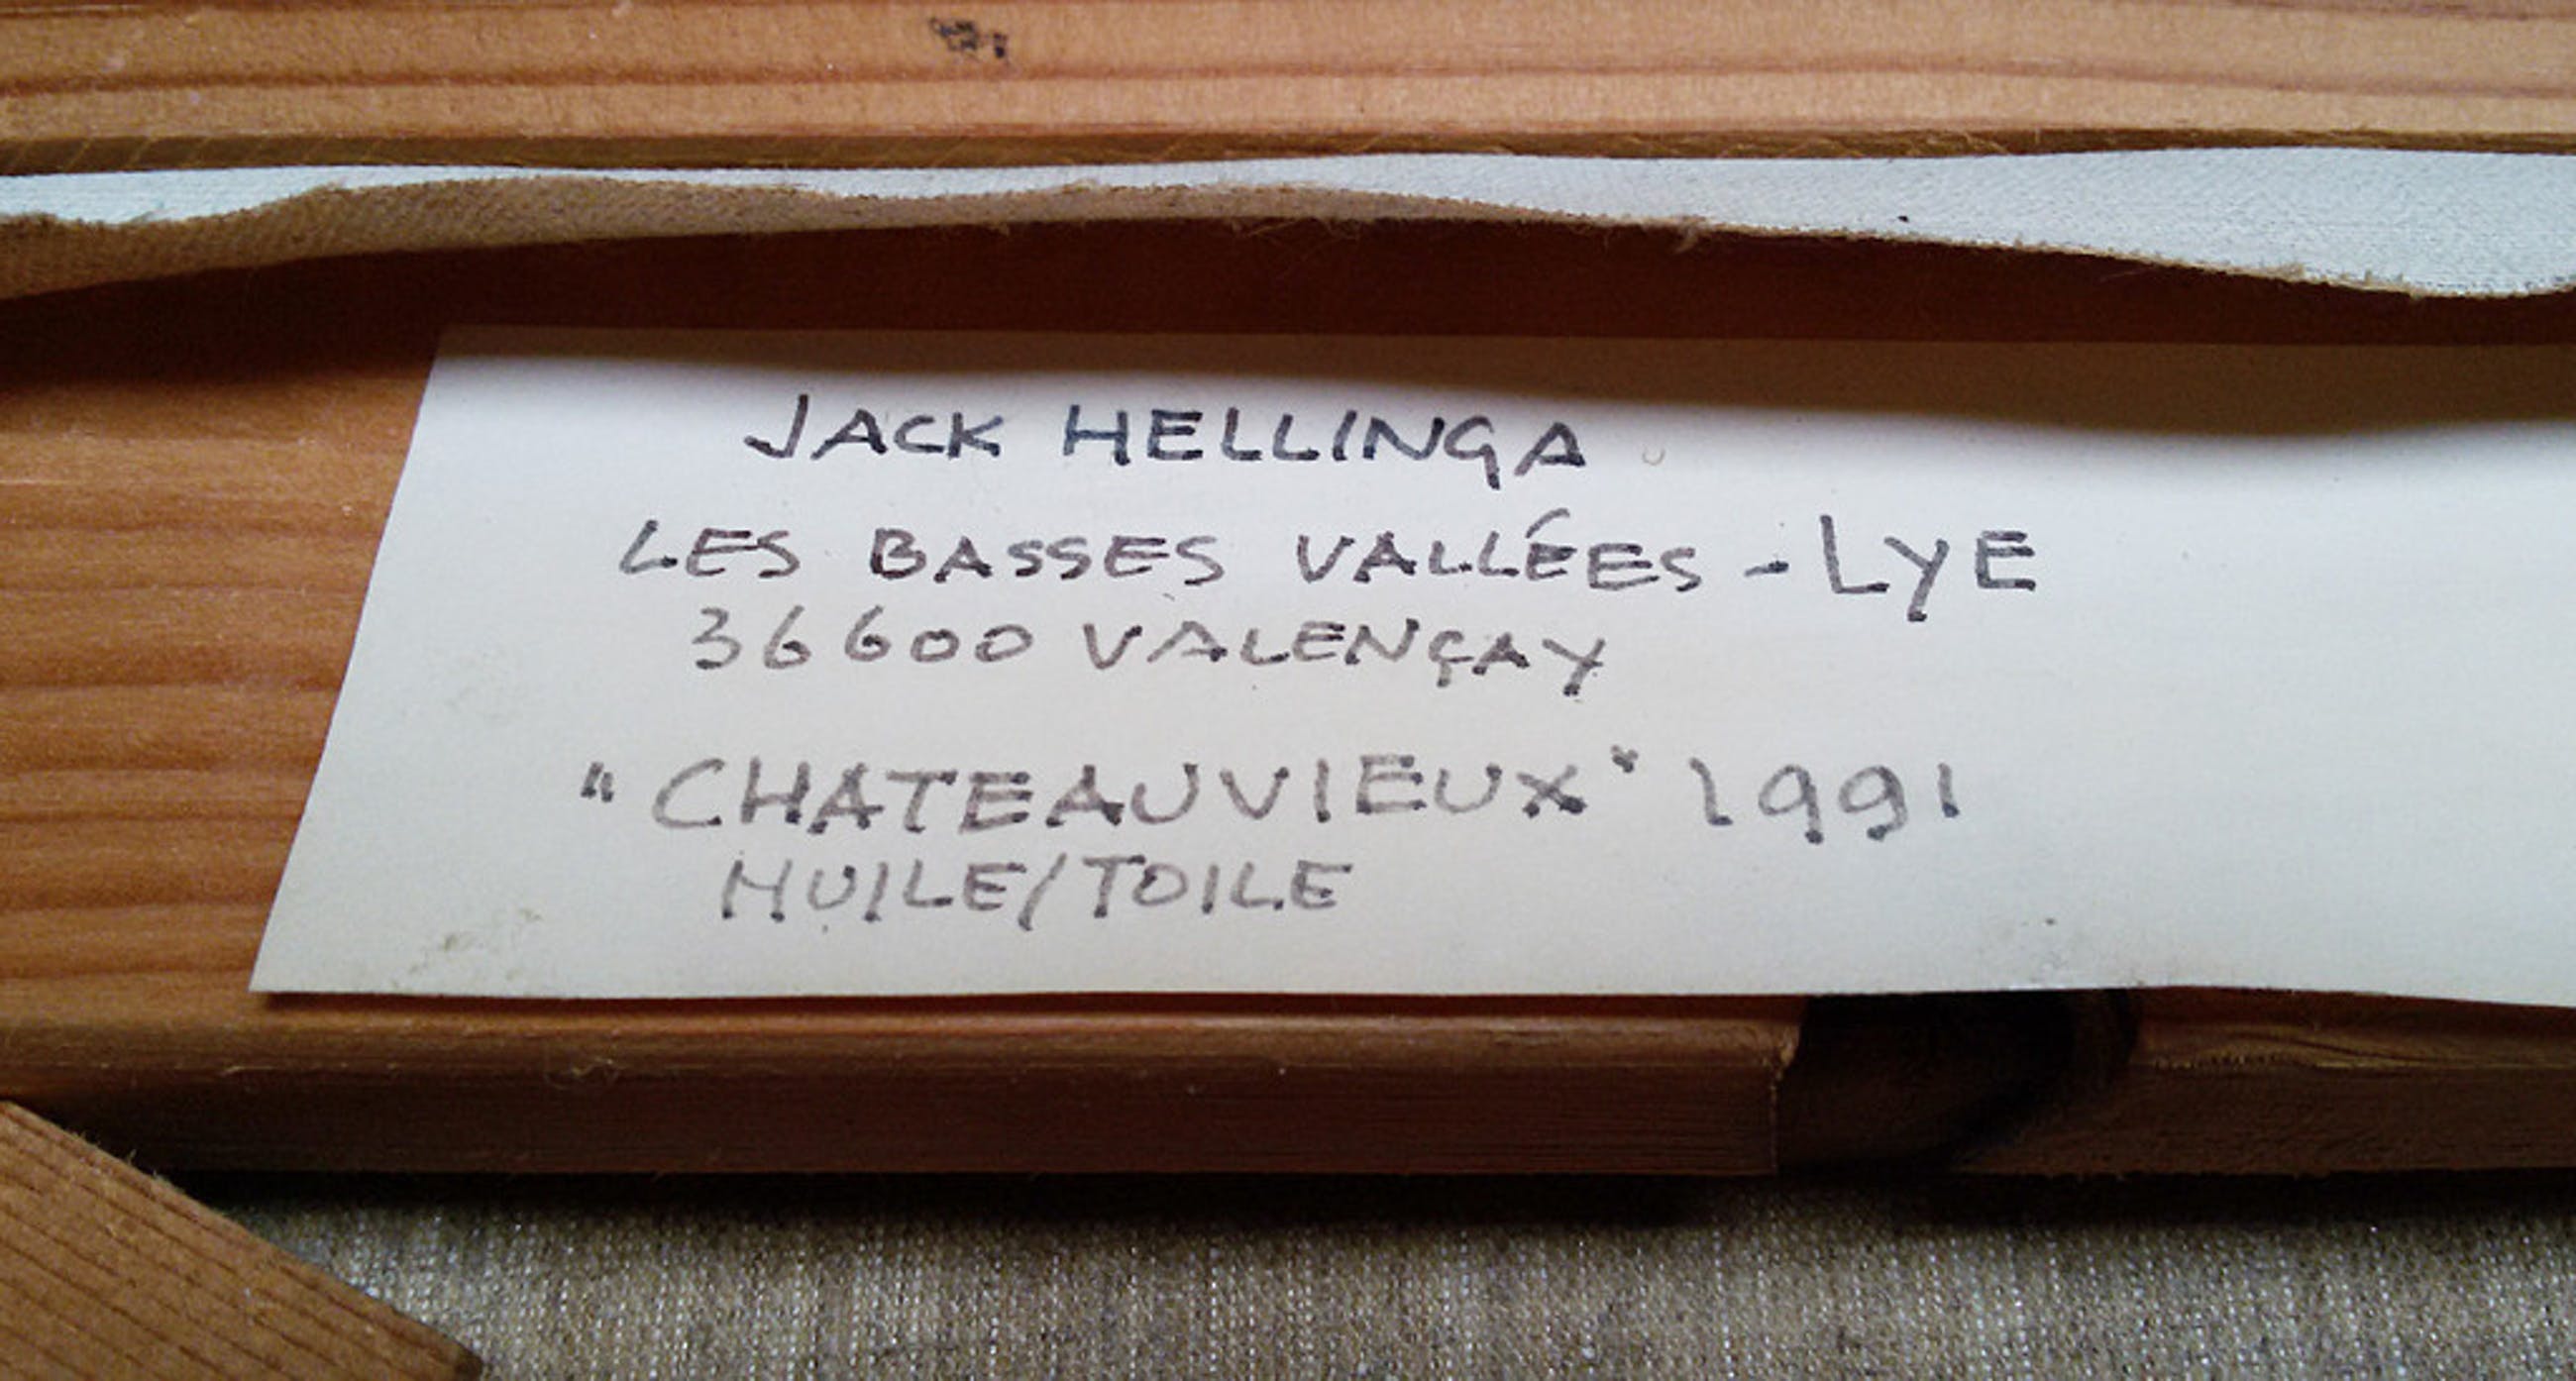 JACK HELLINGA
LES BASSES VALLÉES - LYE
36600 VALENÇAY
"CHATEAUVIEUX" 1991
HUILE/TOILE